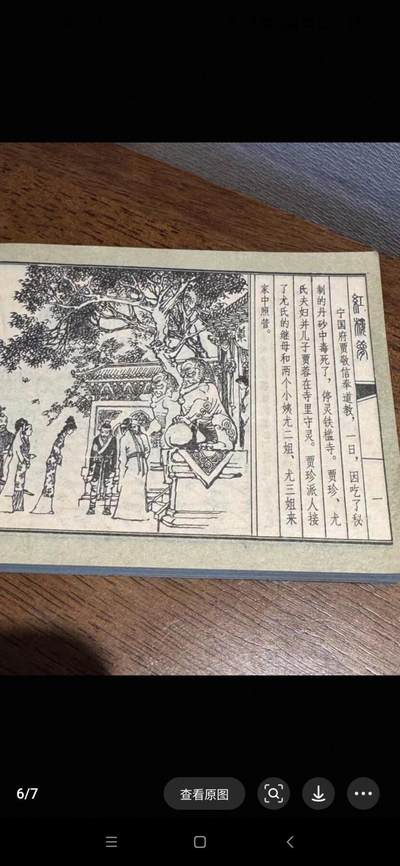 红楼梦
宁国府贾敬信奉道教，一日，因吃了秘
制的丹砂中毒死了，停灵铁槛寺。贾珍、尤
氏夫妇并儿子贾蓉在寺里守灵。贾珍派人接
了尤氏的继母和两个小姨尤二姐、尤三姐来
家中照管。
一
6/7
查看原图